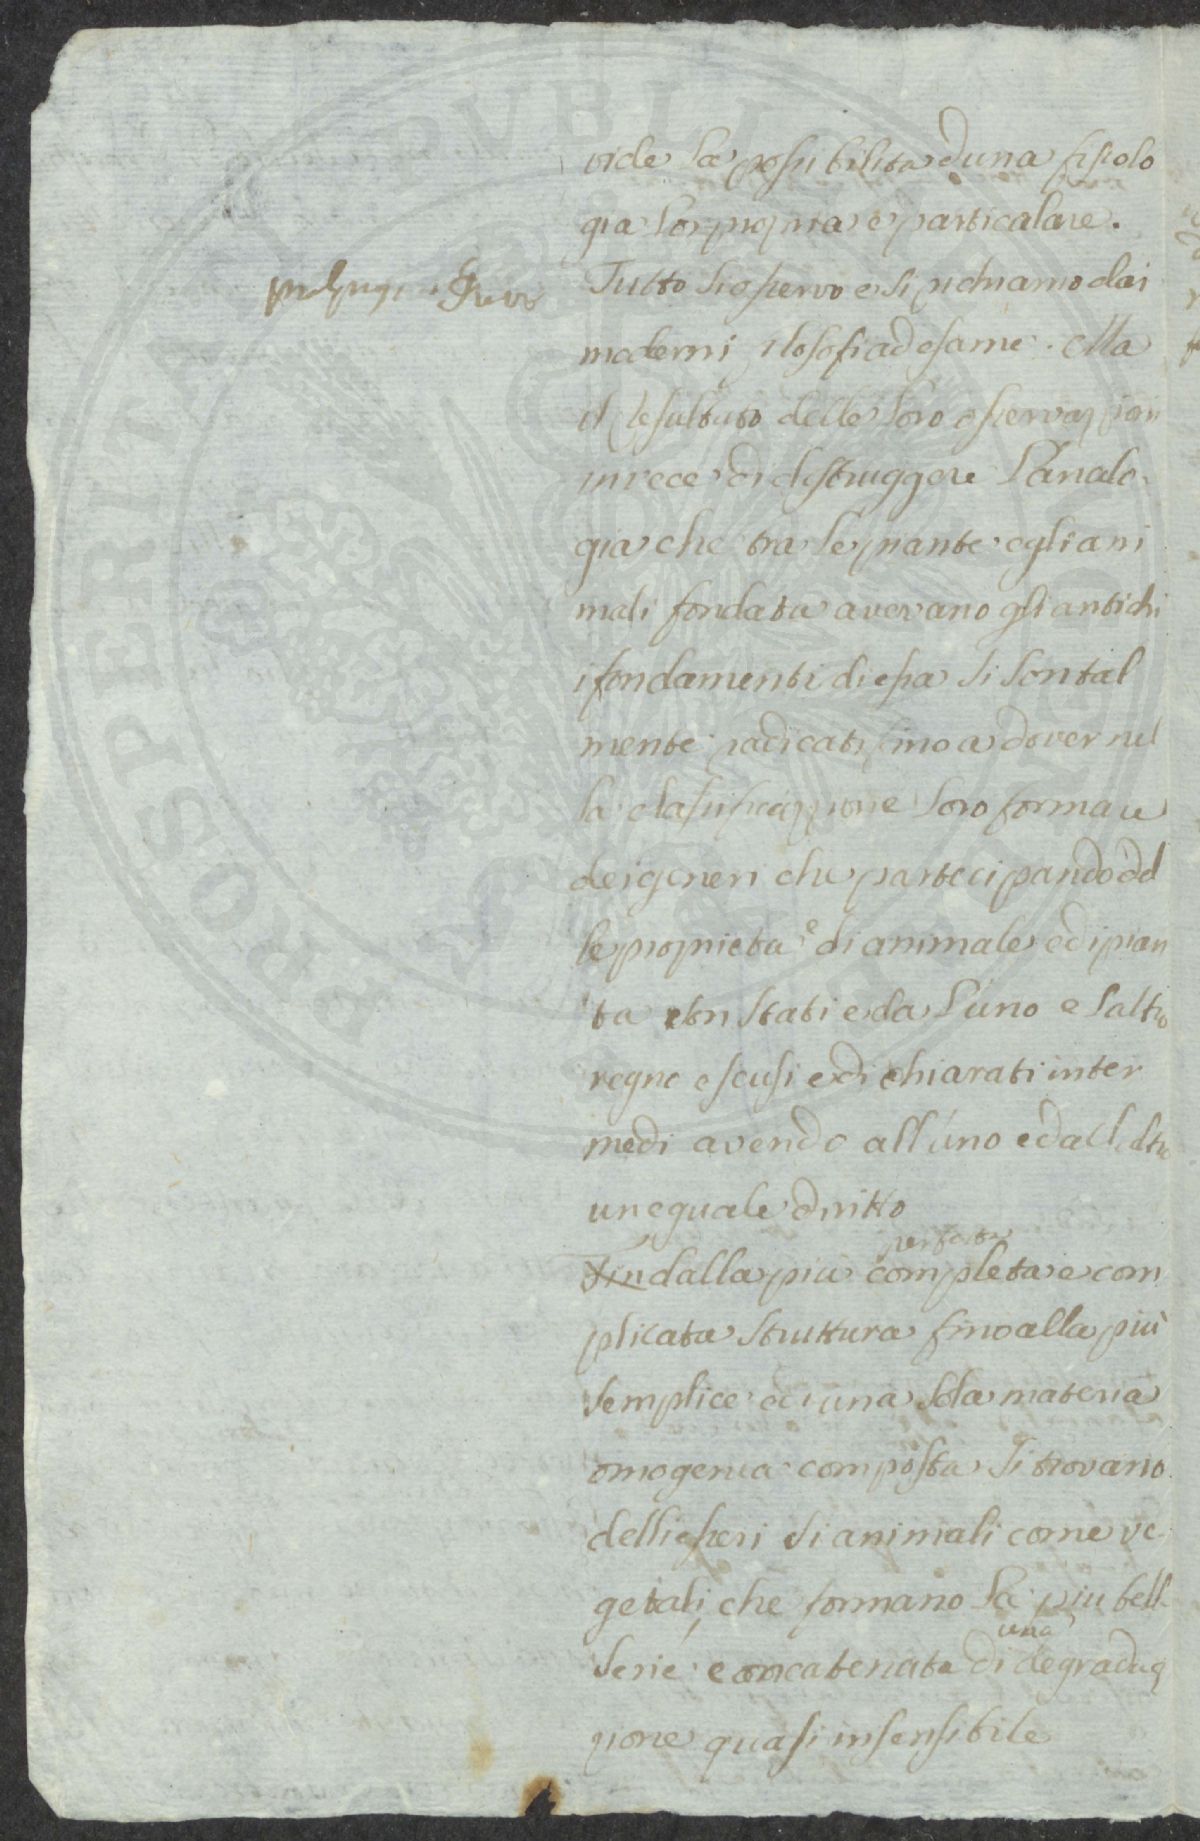 vide la possibilita d'una fisolo
gia lor propria e particalare.
Tutto si osservo e si richiamo dai
moderni filosofi ad esame. Ma
il resultato delle loro osservazzioni
invece di distruggere l'analo-
gia che tra le piante e gli ani
mali fondata avevano gli antichi
i fondamenti di essa si son tal
mente radicati fino a dover nel
la classificazzione loro formare
dei generi che partecipando del
le proprieta e di animale e di pian
ta e da l'uno e l'altro
regno esclusi e dichiarati inter
medi avendo all'uno ed all'altro
un eguale dritto
perfetta
Fin dalla piu completa e com
plicata struttura fino alla più
semplice e di una sola materia
omogenia composta si trovano
delli esseri si animali come ve-
getali, che formano la piu bell
una
serie concatenata di degradaz
zione quasi insensibile
PROSPERITATI PVBLICAE